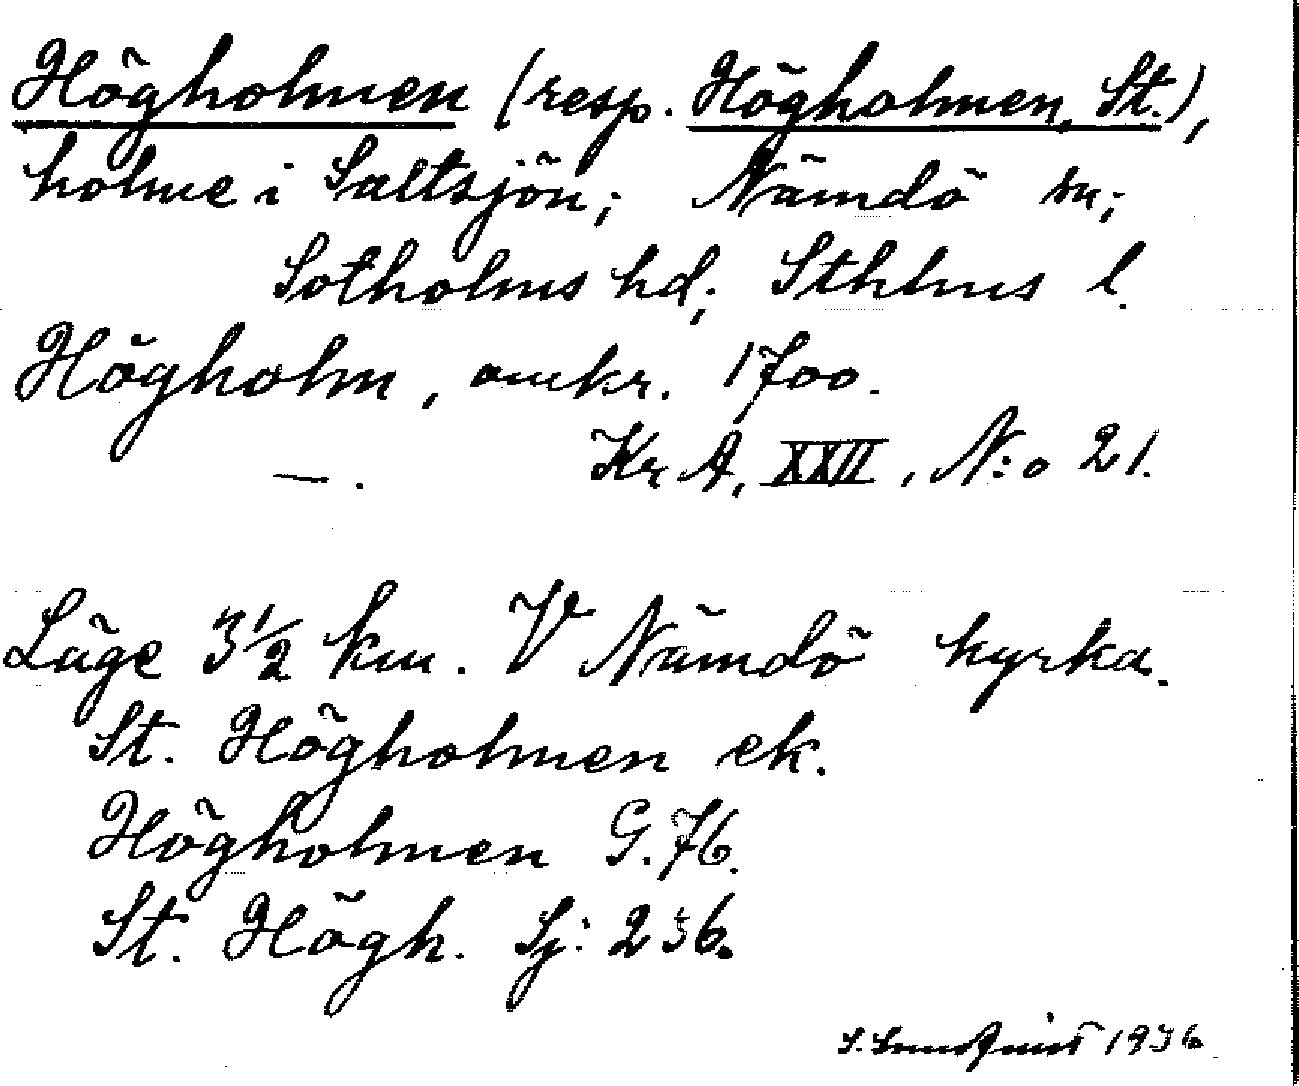 Högholmen (resp. Högholmen, St.),
holme i Saltsjön; Nämdö sn;
Sotholms hd; Sthlms l.
Högholm, omkr. 1700.
—. Kr A, XXII, N:o 21.
Läge 3 1/2 km. V Nämdö kyrka.
St. Högholmen ek.
Högholmen G. 76.
St. Högh. Sj: 236.
S. 1936